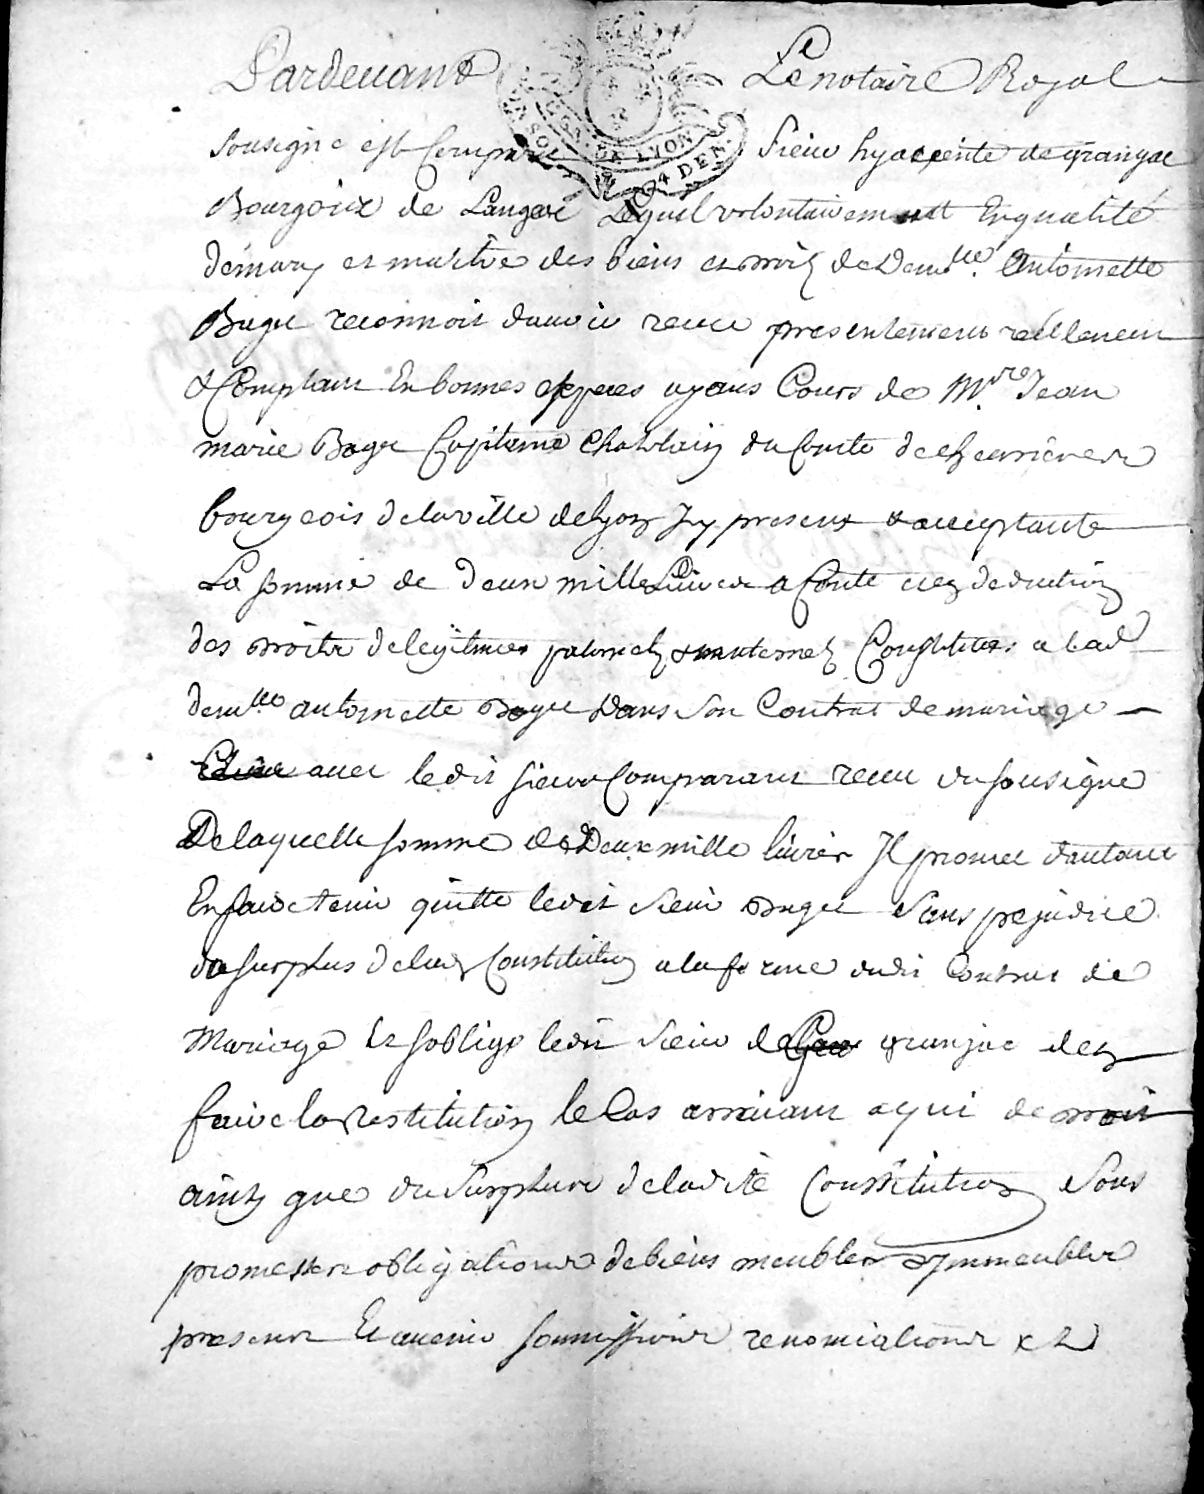 Pardevant Le notaire Royal
GEN DE LYON
4 DEN.
sousigne est Comparu sieur hyacyente de granjac
Bourgoix de Langeac Lequel volontairement En qualité
de mary et maitre des biens et droits de Demlle. Antoinette
Bagu reconnois dauoir receu presentement reellement
& Comptant En bonnes especes ayans Cours de Mre Jean
marie Bagu Capitaine Chatelain du Comte de
bourgeois de la ville de Lyon Jcy present & acceptante
La somme de deux mille Liures a Conte et en deduction
des droits de legitimes paternels & maternels Constitues a lad
demlle antoinette Bagu dans son Contrat de mariage
auec ledit sieur Comparant receu du sousigne
De laquelle somme de Deux mille liures Jl promet dautant
En faire tenir quitte ledit sieur Bagu sans prejudice
du surplus de lad Constitution a la forme dudit Contrat de
Mariage Et soblige ledit sieur de granjac den
faire la restitution le Cas arriuant a qui de droit
ainsy que du surplus de ladite Constitution sous
promesses obligations de biens meubles & Jmmeubles
presens Et auenir soumissions renonciations &